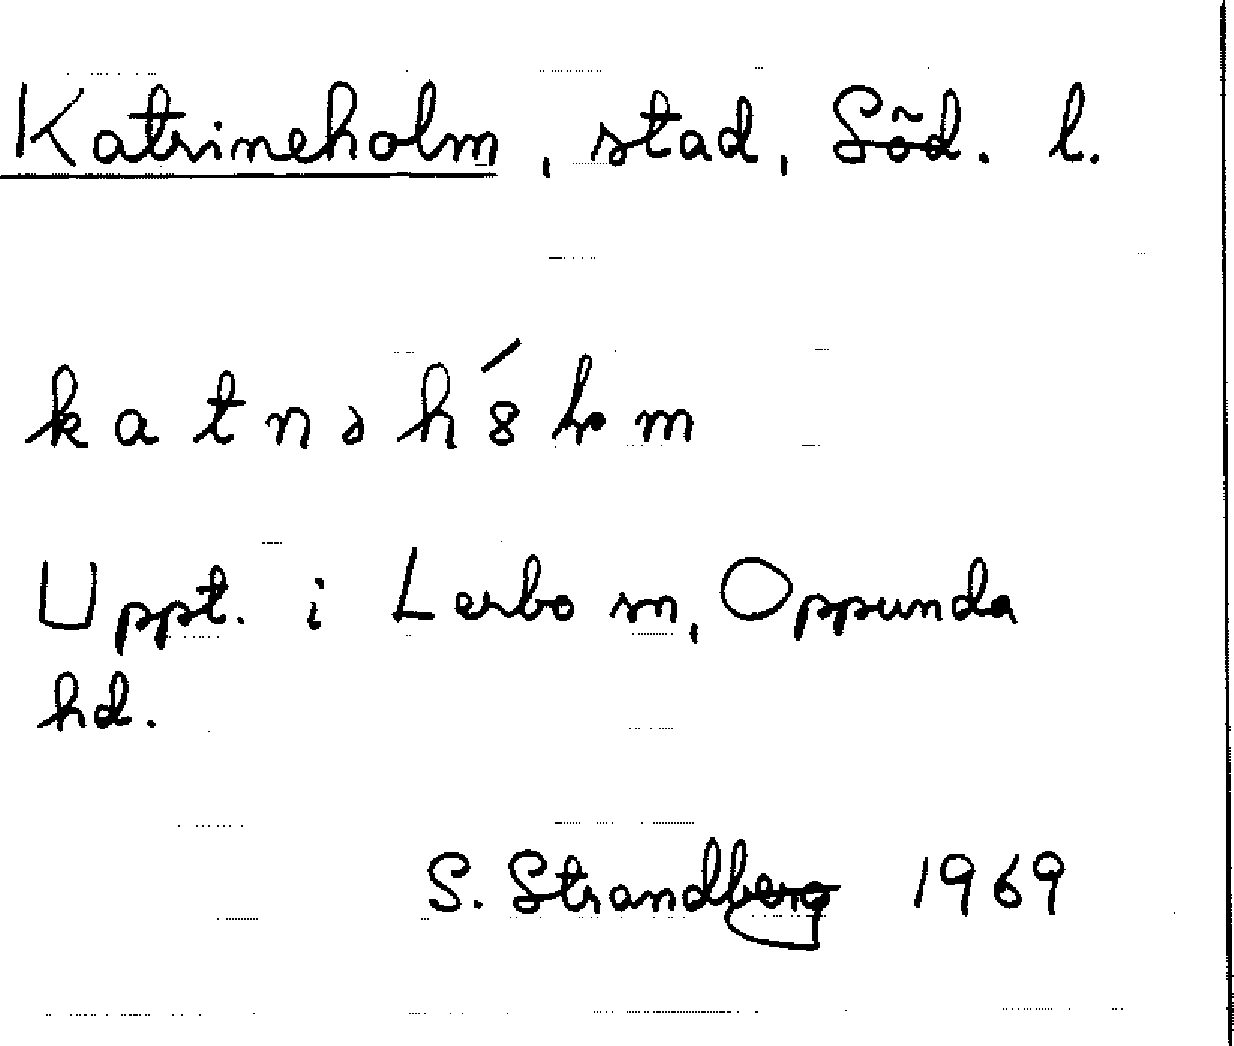 Katrineholm, stad, Söd. l.
katnəh́8lm
Uppt. i Lerbo sn, Oppunda
hd.
S. Strandberg 1969